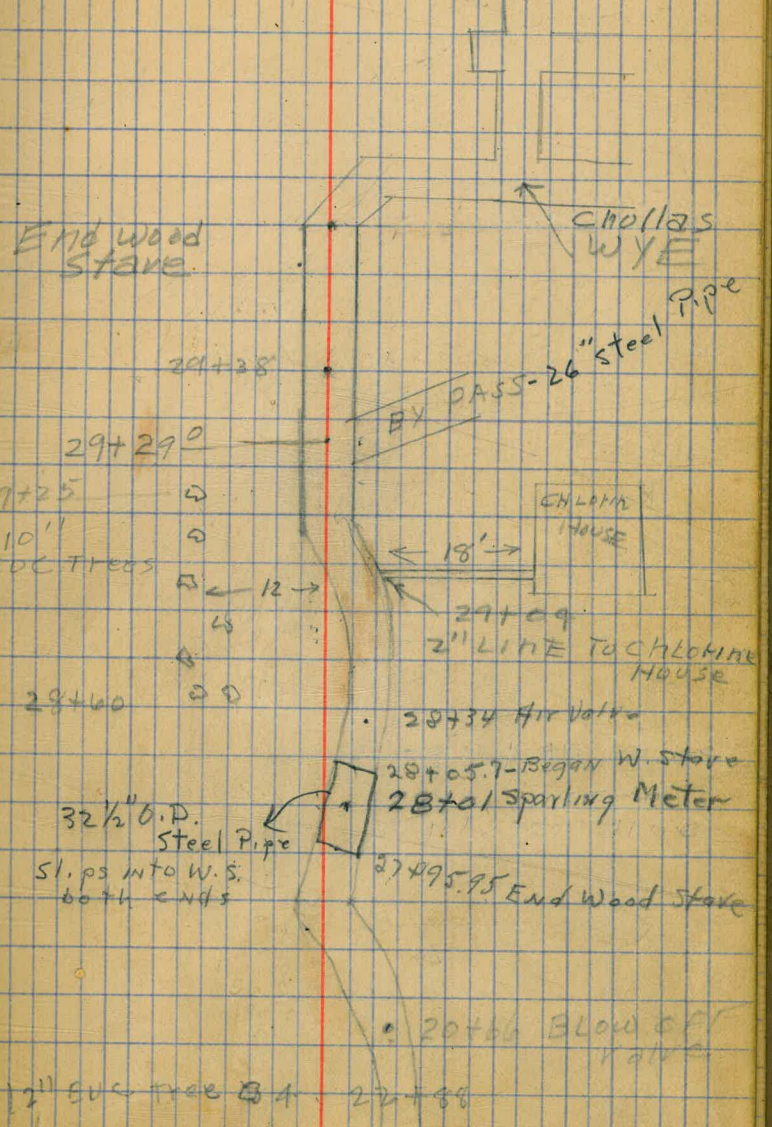 Chollas
WYE
End wood
Stave
BY PASS-26" Steel Pipe
29+38
29+29
9+25
10"
UC TREES
CHLORIN
HOUSE
18'
12
29+09
2" LINE TO CHLORINE
HOUSE
28+60
28+34 Air Valve
28+05.7-Began W. Stave
28+01 Sparling Meter
32 1/2" O.D.
Steel Pipe
Slips into W.S.
both ends
27+95.95 End Wood Stave
20+66 BLOW OFF
Valve
12" EUC Tree 22+88